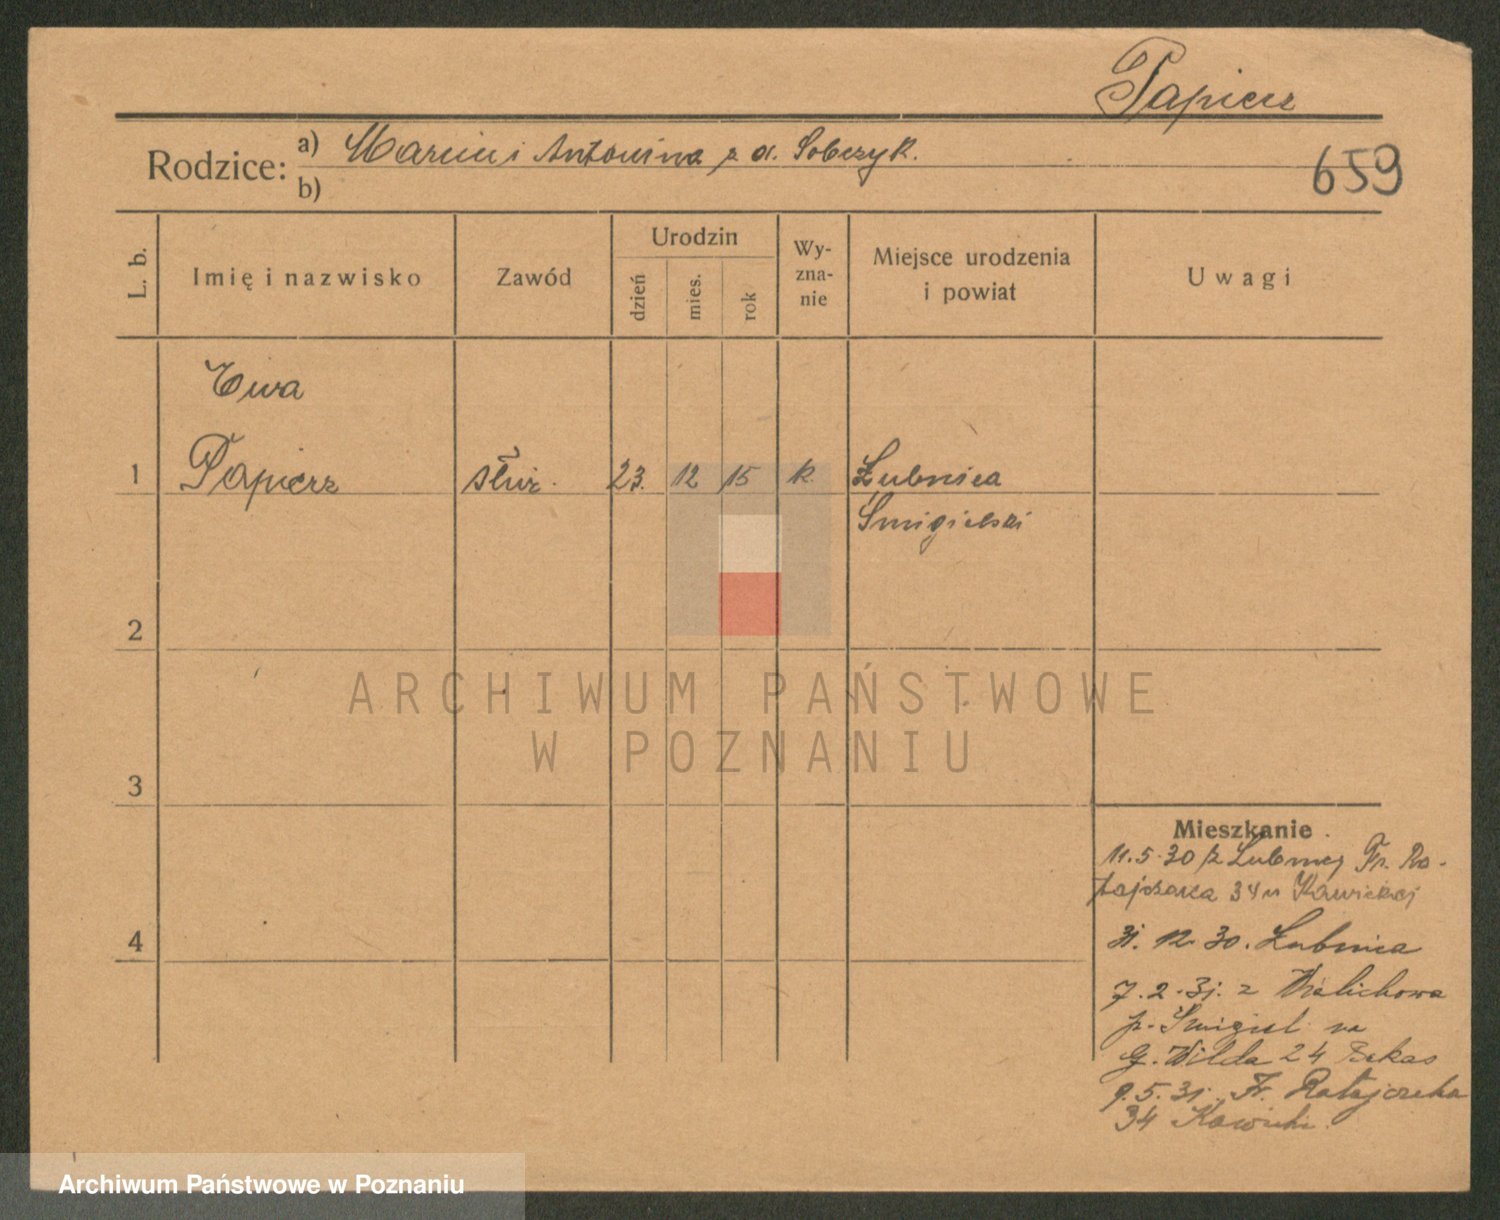 Papierz
Rodzice: a) Marcin i Antonina z d. Sobczyk.
b)
659
L. b.
Imię i nazwisko
Zawód
Urodzin
dzień
mies.
rok
Wy-
zna-
nie
Miejsce urodzenia
i powiat
Uwagi
Ewa
1 Papierz służ. 23. 12 15 k. Łubnica
Śmigielski
2
ARCHIWUM PAŃSTWOWE
W POZNANIU
3
Mieszkanie
11.5.30 z Łubnicy Fr. Ra-
tajczaka 34 u Kawickiej
4
31. 12. 30. Łubnica
7. 2. 31. z Wielichowa
p. Śmigiel na
G. Wilda 24 Bekas
9. 5. 31. Fr. Ratajczaka
34 Kawicki.
Archiwum Państwowe w Poznaniu